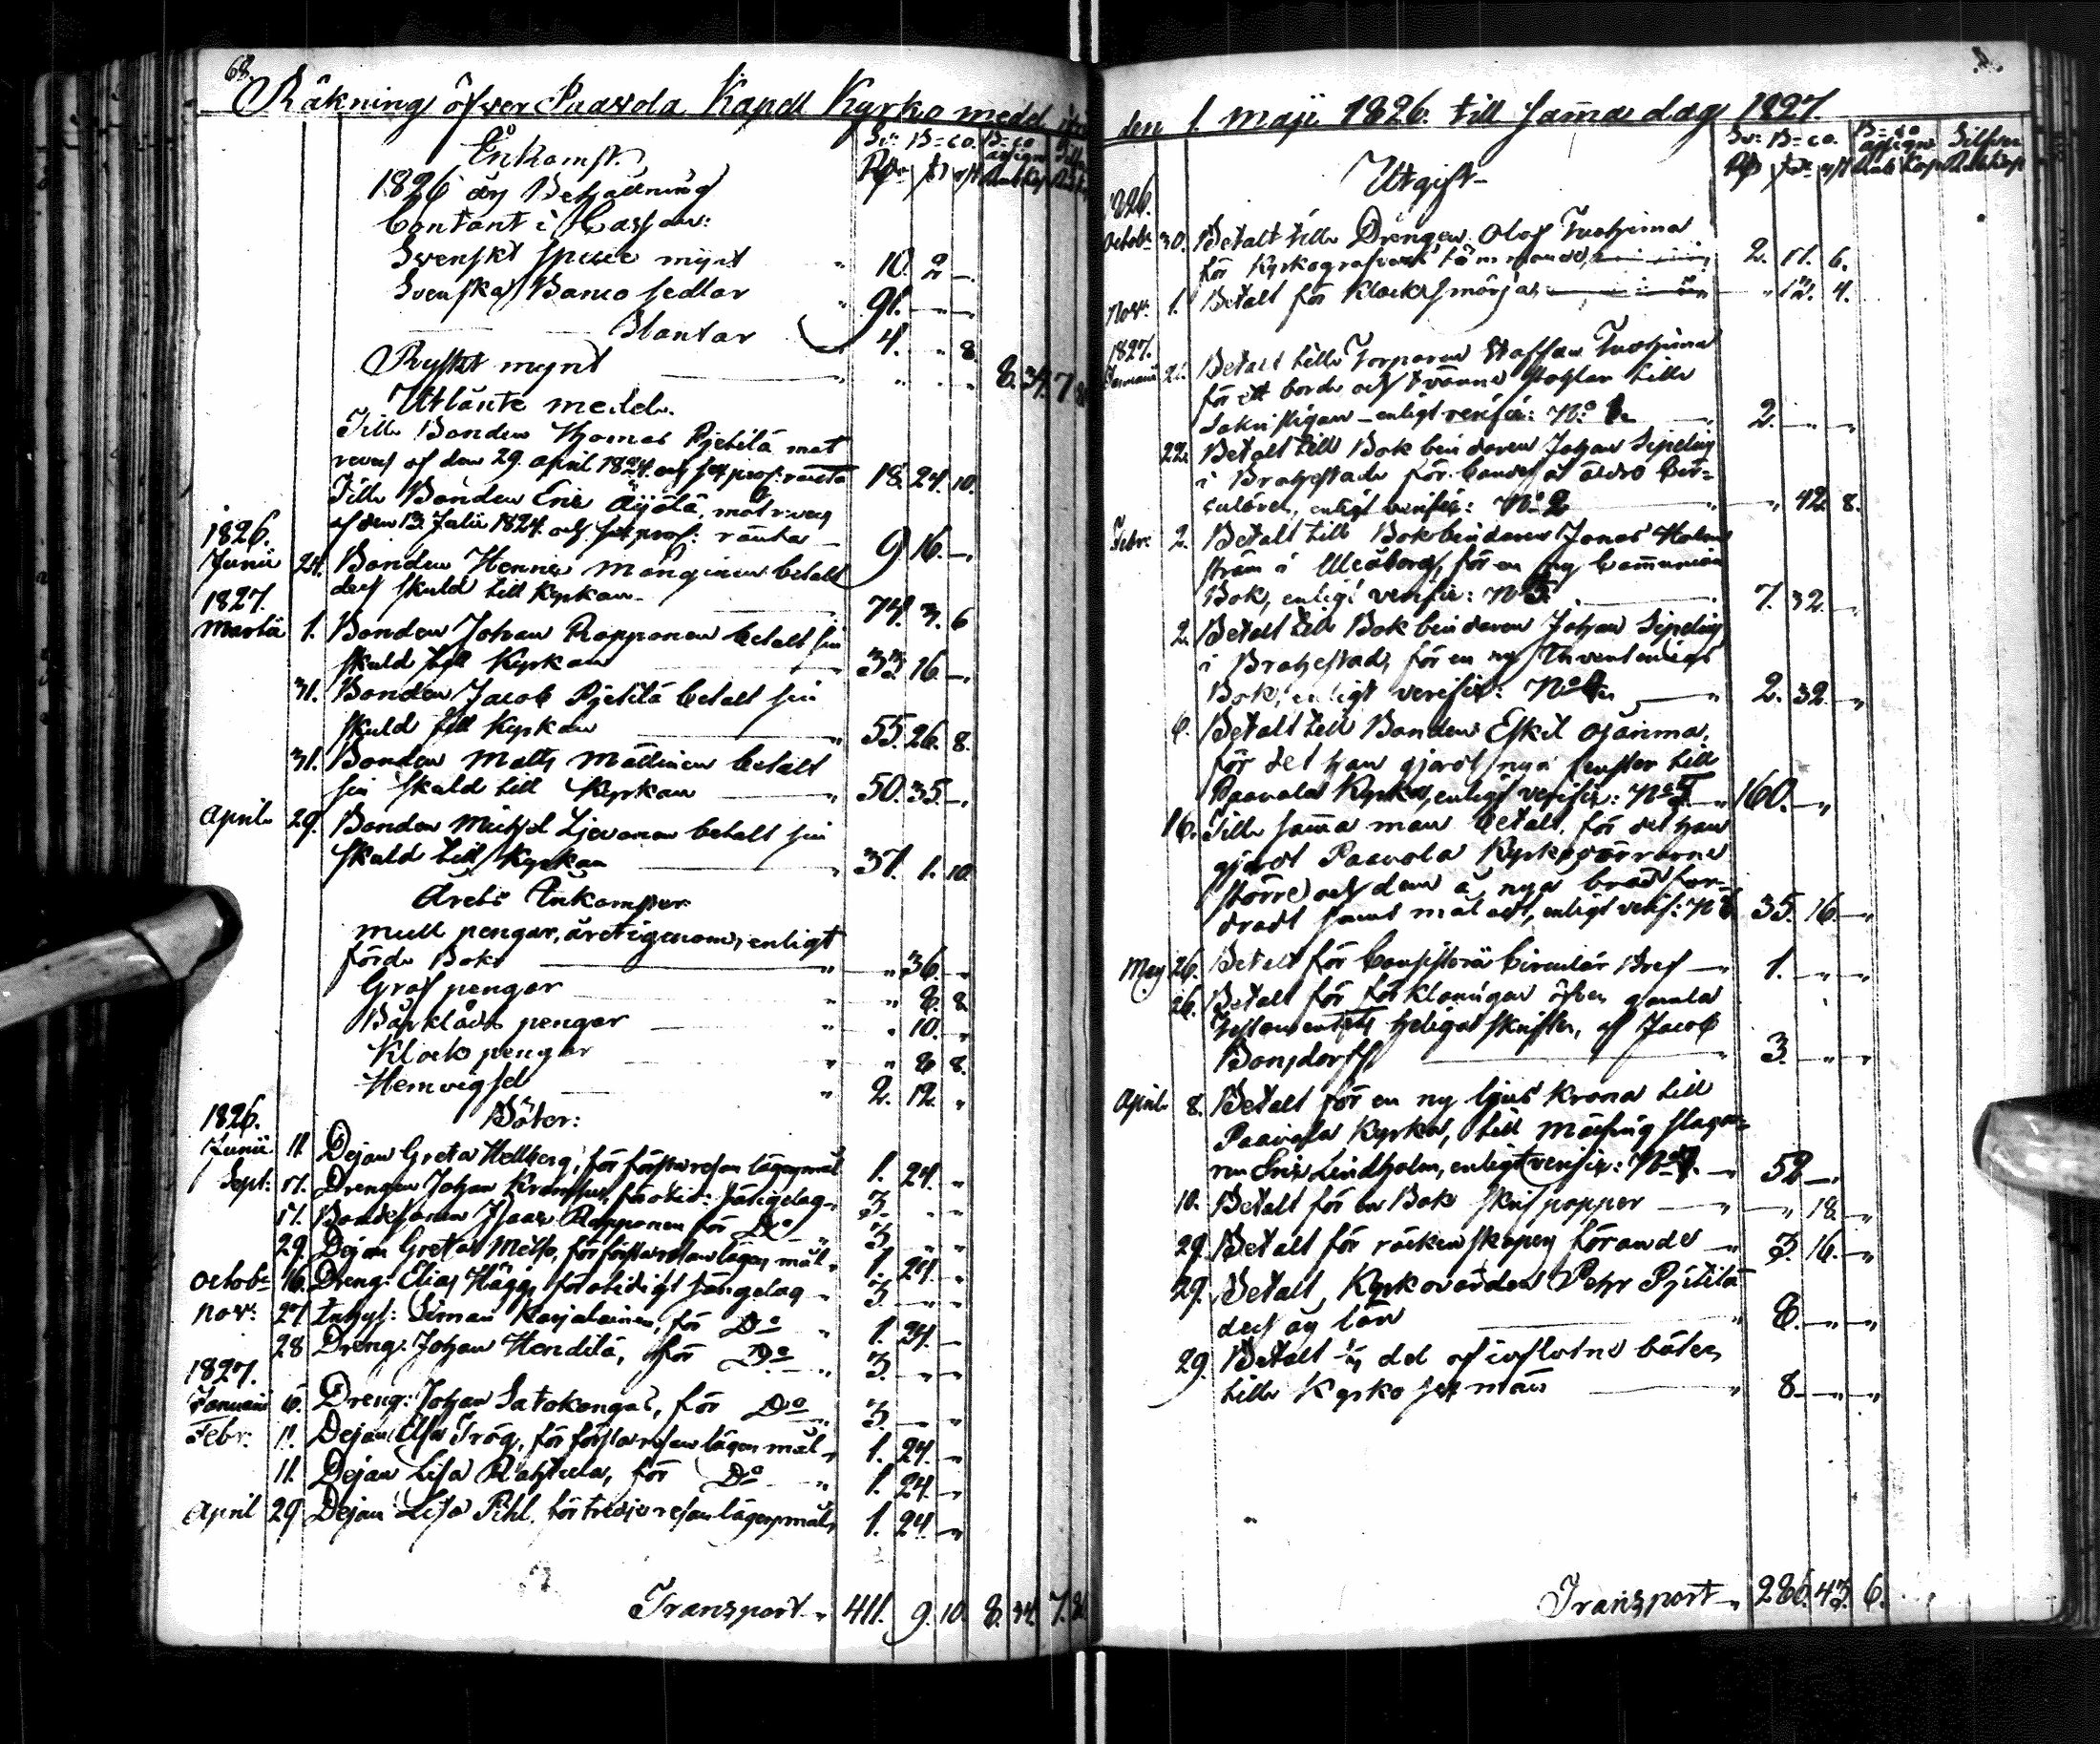 68.
Räkning öfver Paavola Kapell Kyrko medel
Inkomst.
Sv: B=co. B=co assign.
Rdr
1826 års Behållning
Contant i Cassan:
Svenskt specie mynt " 10. 2. –"
Svenska Banco sedlar " 91. –" –"
Slantar 4. " 8.
Ryskt mynt " " " " 8. 34. 7
Utlånte medel.
Till Bonden Thomas Pjetilä mot
revers af den 29. april 1824. och sex proc: ränta 18. 24. 10.
Till Bonden Eric Äijälä, mot revers
af den 13. Julii 1824. och sex proc: ränta – 9. 16. –"
1826.
Junii 24. Bonden Henric Mänginen betalt
dess skuld till Kyrkan 74. 3. 6
1827.
Martii 1. Bonden Johan Rapponen betalt sin
skuld till Kyrkan 33. 16. –"
31. Bonden Jacob Pjetilä betalt sin
skuld till Kyrkan " 55. 26. 8.
31. Bonden Matts Mattinen betalt
sin skuld till Kyrkan " 50. 35. –"
April 29. Bonden Michel Ljevonen betalt sin
skuld till Kyrkan " 37. 1. 10.
Årets Inkomster
Mull pengar, året igenom, enligt
förde Bok " " 36. –"
Graf pengar " " 8. 8
Bårklädes pengar " " 10. "
Klock pengar " " 6 8.
Hemvigsel " 2. 12. "
Böter:
1826.
Junii 11. Dejan Greta Hellberg, för första resan lägersmål 1. 24. "
Sept: 17. Drengen Johan för otid: sängelag 3. " "
17. Bondesonen Isaac Rapponen för Do " 3. " "
29. Dejan Greta för första resan lägersmål " 1. 24. "
Octobr 16. Dreng: Elias Hägg, för otidigt sängelag " 3. –" –"
Nov: 27. Inhys: Simon Karjalainen, för Do " 1. 24. –
28 Dreng: Johan Hendilä, för Do " 3. –" "
1827.
Januarii 6. Dreng: Johan Satokangas, för Do " 3. –" "
Febr. 11. Dejan Elsa Trög, för första resan lägersmål " 1. 24. –"
11. Dejan Lisa för Do " 1. 24. –"
April 29 Dejan Lisa Pihl, för tredje resan lägersmål 1. 24. –"
Transport " 411. 9. 10. 8. 34. 7.
den 1. Maji 1826. till samma dag 1827.
Utgift
Sv: B=co. B=co assign. Silfver
1826.
Octobr 30. Betalt till Drengen Olof Tuohima
för Kyrkogårdens 2. 17. 6.
Nov: 1. Betalt för Klocksmörja " 12. 4.
1827.
Januarii 21. Betalt till Torparen Staffan Tuohima
för ett bord och tvänne stohlar till
Sakristigan – enligt verific: No 1. 2. –" –"
22. Betalt till Bokbindaren Johan
i Brahestad för af äldre Cir-
culärer, enligt verific: No 2 " " 42. 8.
Febr: 2. Betalt till Bokbindaren Jonas Holm
ström i Uleåborg, för en ny Communion
Bok, enligt verific: No 3. 7. 32. –"
2. Betalt till Bokbindaren Johan
i Brahestad, för en ny Inventarii
Bok, enligt verific: No 4 " 2. 32. –"
6. Betalt till Bonden Eskil Ojanma,
för det han gjordt nya fenster till
Paavola Kyrka, enligt verific: No 5. –" 160. –"
16. Till samma man betalt, för det han
gjordt Paavola Kyrkodörrarne
större och dem å nya
samt måladt, enligt verif: No 6 35. 16. –"
May 26. Betalt för Consistorii Circulär Bref –" 1. –" –"
26. Betalt för förklaringar öfver gamla
Testamentets heliga skrifter, af Jacob
Bonsdorff " 3. –" –"
April 8. Betalt för en ny ljus Krona till
Paavola Kyrka, till Mässing slaga-
ren Eric Lindholm, enligt verific: No 7. –" 52 –"
10. Betalt för en Bok skrif papper –" –" 18. –"
29. Betalt för räckenskapens förande –" 3. 16. –"
29. Betalt, Kyrkovärden Pehr Pjetilä
dess lön " 8. –" –"
29. Betalt del af influtne böter,
till Kyrko sex män " 8. –" –"
Transport " 286. 43. 6.